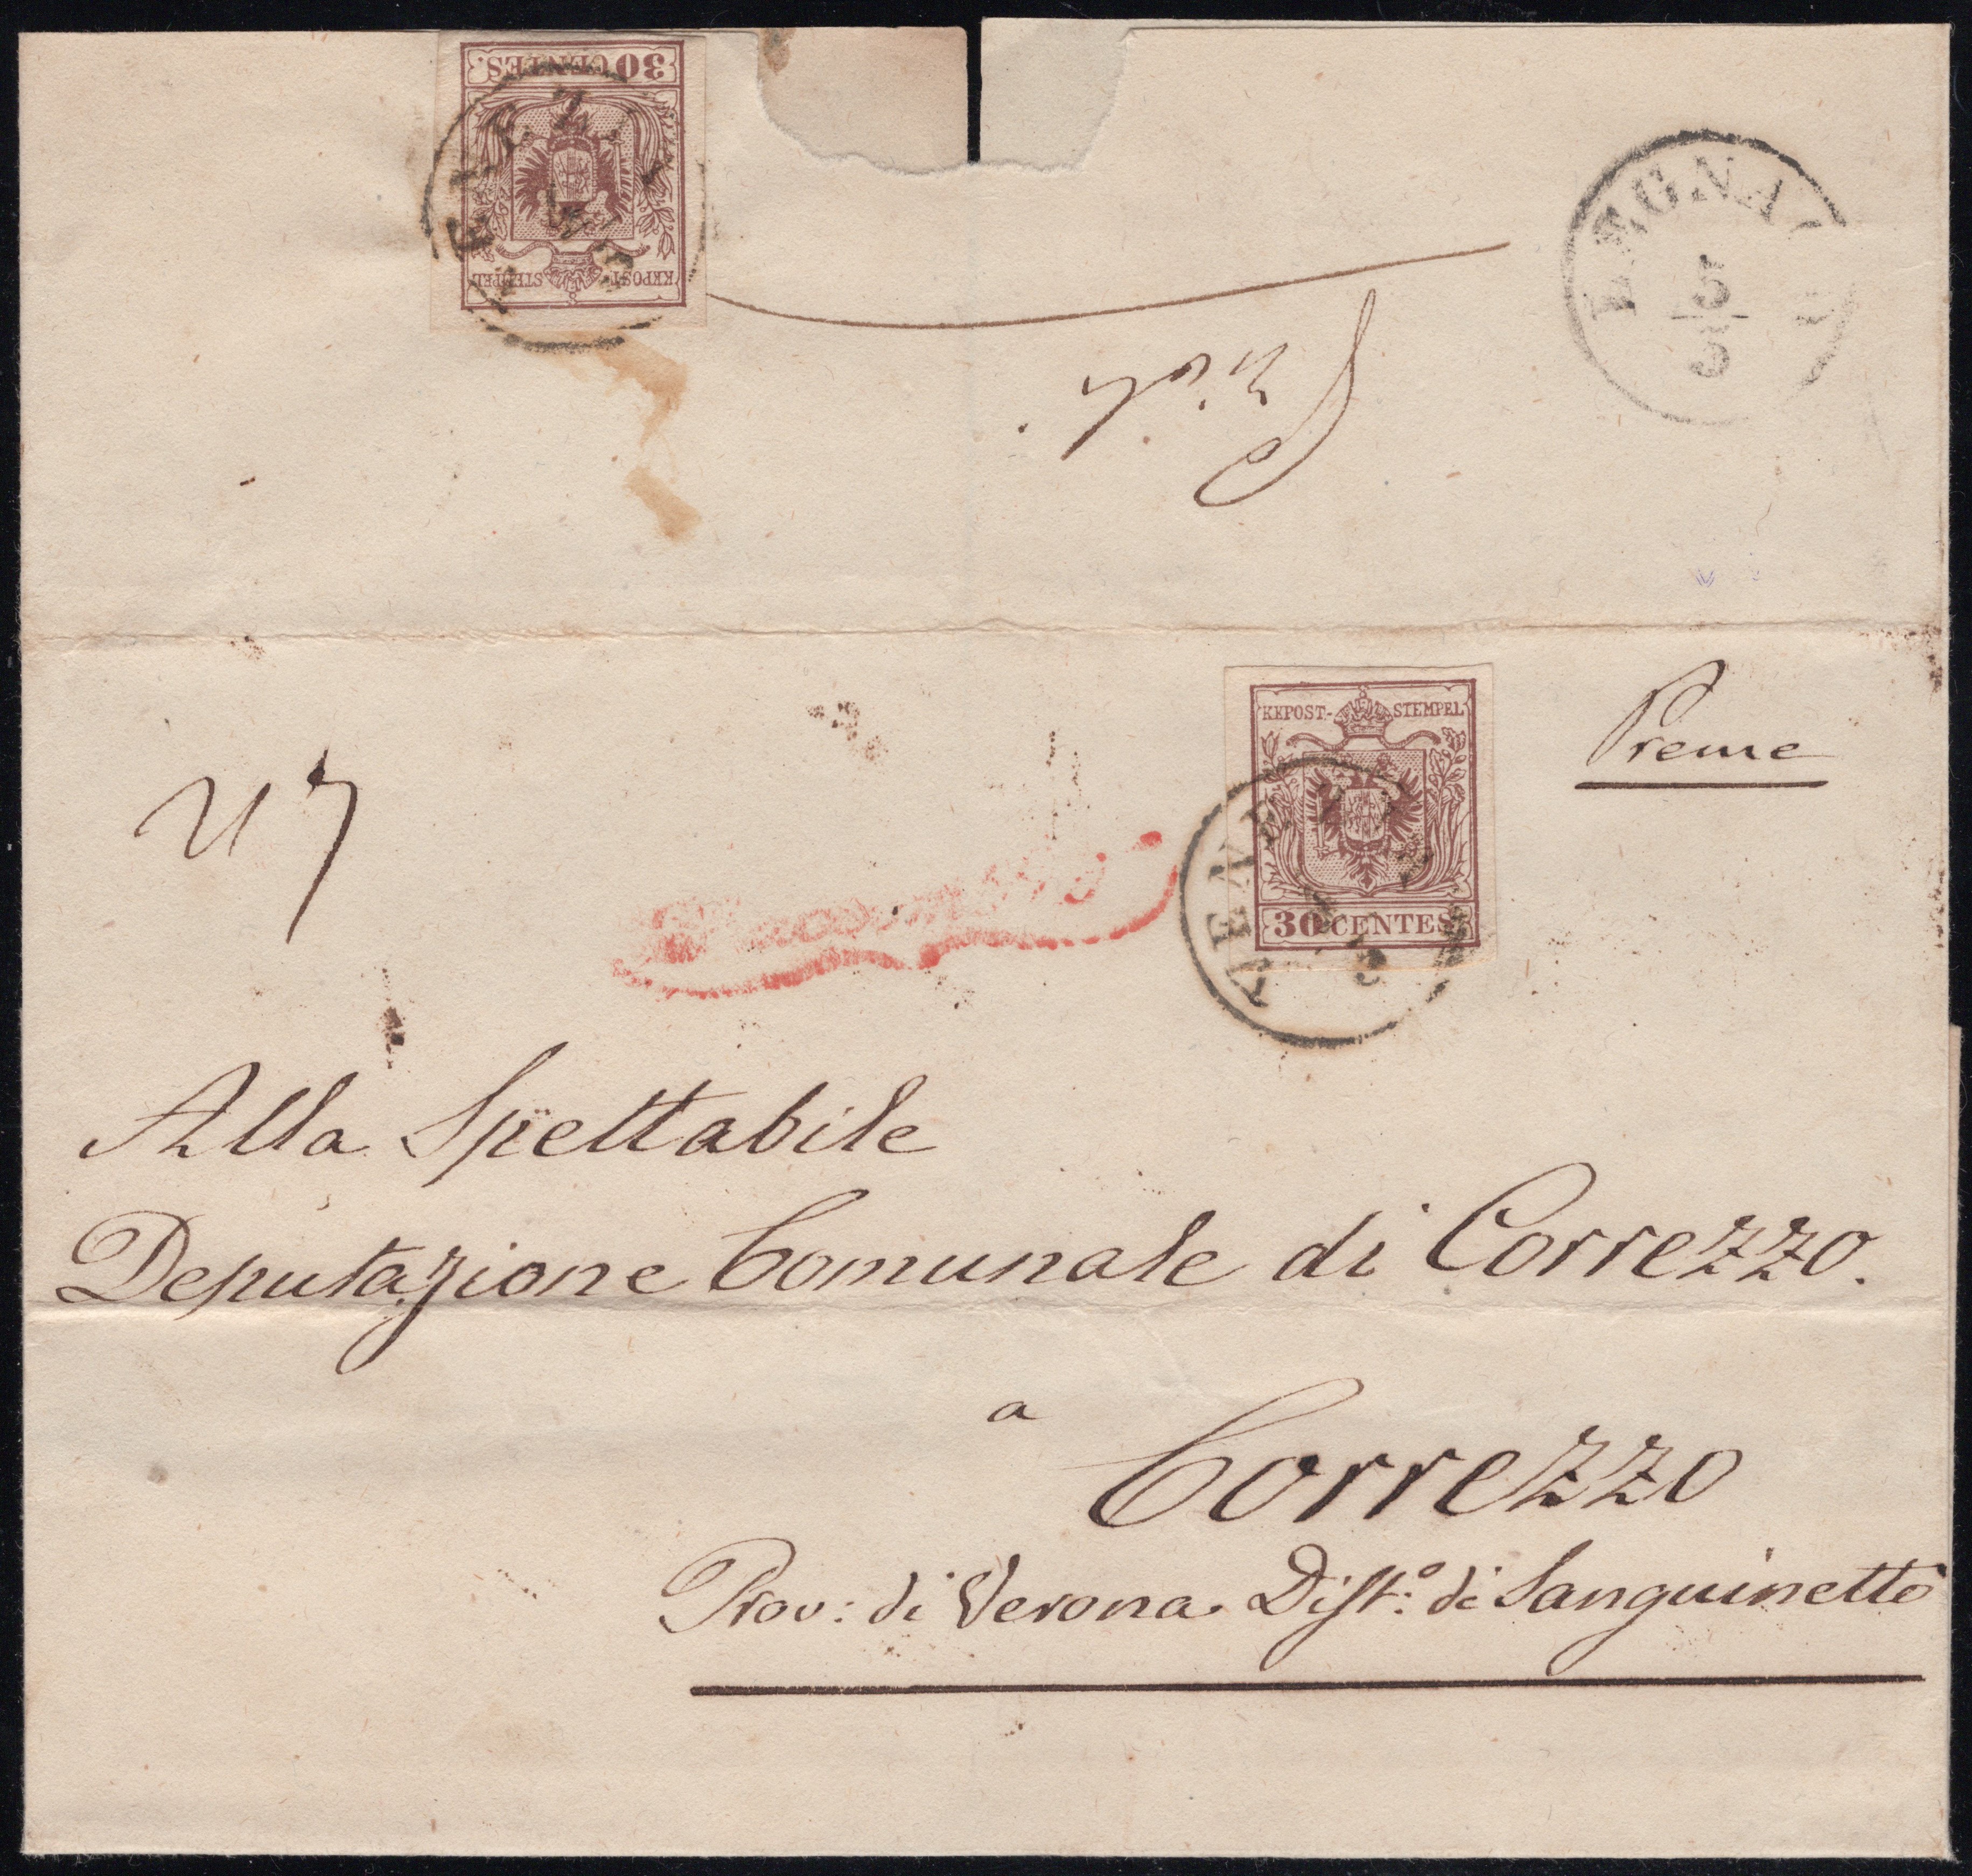 30 CENTES.
KKPOST-STEMPEL
LEGNAGO
5
5
KKPOST-STEMPEL
30 CENTES
VENEZIA
Preme
Alla Spettabile
Deputazione Comunale di Correzzo.
a
Correzzo
Prov: di Verona Dist:o di Sanguinetto